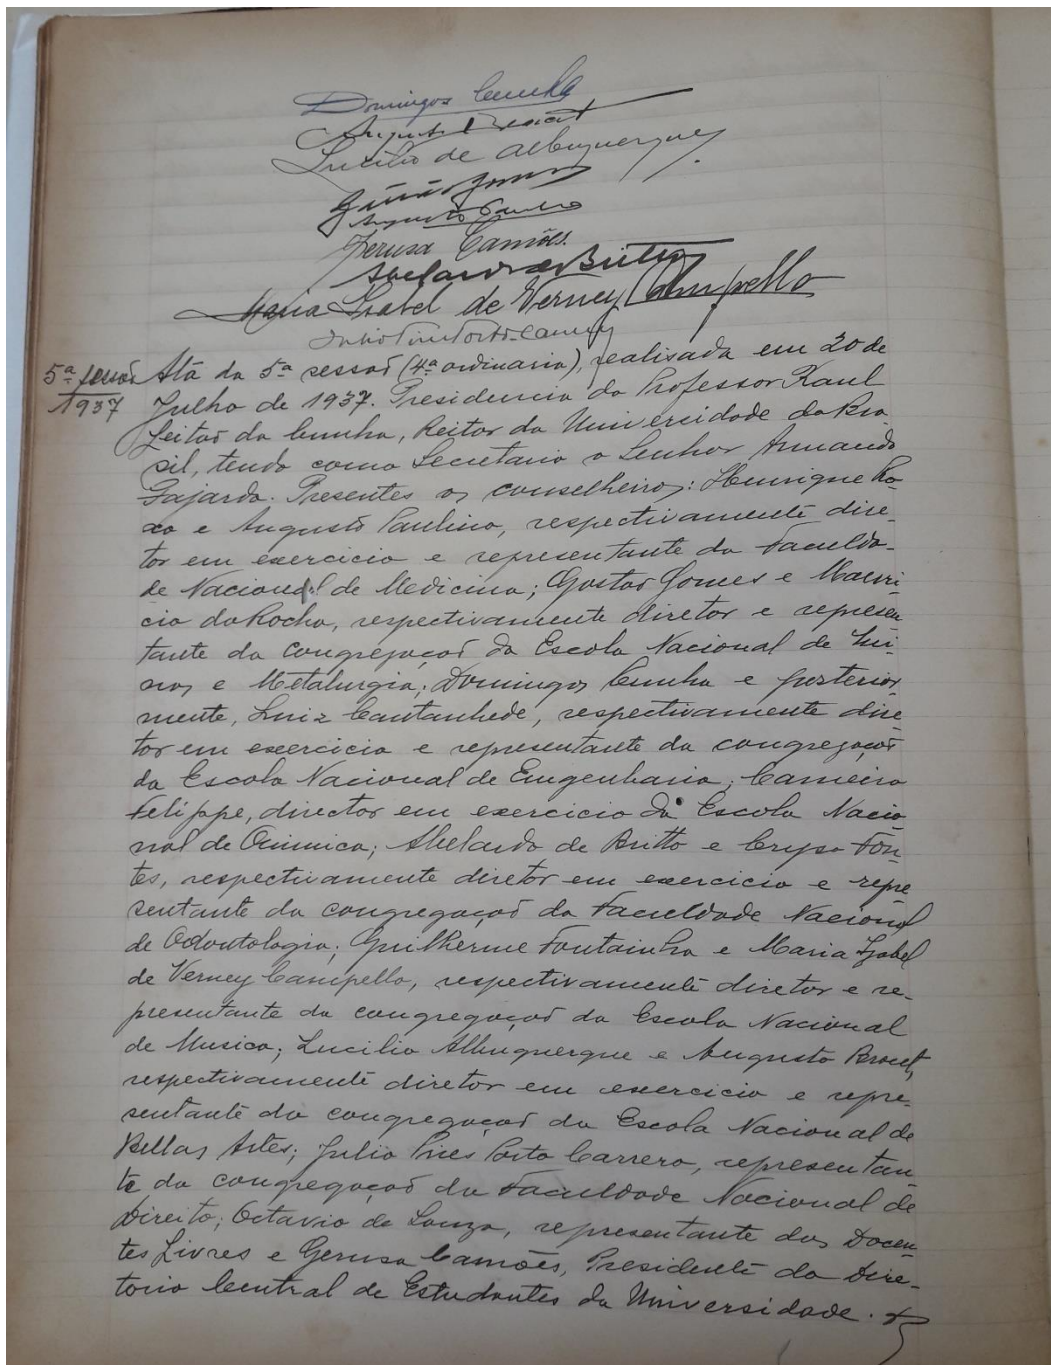 Domingos Cunha
Lucilio de Albuquerque
Augusto Paulino
Jerusa Camões.
Abelardo de Britto
Maria Isabel de Verney Campello
Julio Pires Porto-Carrero
5ª sessaõ
1937
Ata da 5ª sessaõ (4ª ordinaria), realisada em 20 de
Julho de 1937. Presidencia do Professor Raul
Leitaõ da Cunha, Reitor da Universidade do Bra
sil, tendo como Secretario o Senhor Armando
Fajardo. Presentes os conselheiros: Henrique Ro-
xo e Augusto Paulino, respectivamente dire-
tor em exercicio e representante da Faculda-
de Nacional de Medicina; Gastaõ Gomes e Mauri
cio da Rocha, respectivamente diretor e represen
tante da congregaçaõ da Escola Nacional de Mi-
nas e Metalurgia; Domingos Cunha e posterior
mente, Luiz Cantanhede, respectivamente dire
tor em exercicio e representante da congregaçaõ
da Escola Nacional de Engenharia; Carneiro
Felippe, director em exercicio da Escola Nacio-
nal de Quimica; Abelardo de Britto e Cryso Fon-
tes, respectivamente diretor em exercicio e repre
sentante da congregaçaõ da Faculdade Nacional
de Odontologia; Guilherme Fontainha e Maria Izabel
de Verney Campello, respectivamente diretor e re-
presentante da congregaçaõ da Escola Nacional
de Musica; Lucilio Albuquerque e Augusto Bracet,
respectivamente diretor em exercicio e repre-
sentante da congregaçaõ da Escola Nacional de
Bellas Artes; Julio Pires Porto Carrero, representan
te da congregaçaõ da Faculdade Nacional de
Direito; Octavio de Souza, representante dos Docen-
tes Livres e Gerusa Camões, Presidente do Dire-
torio Central de Estudantes da Universidade.